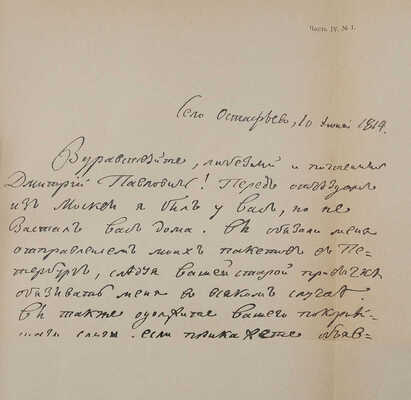 Часть IV, № 1.
Село Остафьево, 10 Июня 1819.
Здравствуйте, любезный и почтенный
Дмитрій Павловичь! Передъ отъѣздомъ
изъ Москвы я былъ у васъ, но не
засталъ васъ дома. Вы обязали меня
отправленіемъ моихъ пакетовъ въ Пе-
тербургъ, слѣдуя вашей старой привычкѣ
обязывать меня во всякомъ случаѣ.
Вы также одолжите вашего покорнѣй-
слугу, если прикажете объяв-